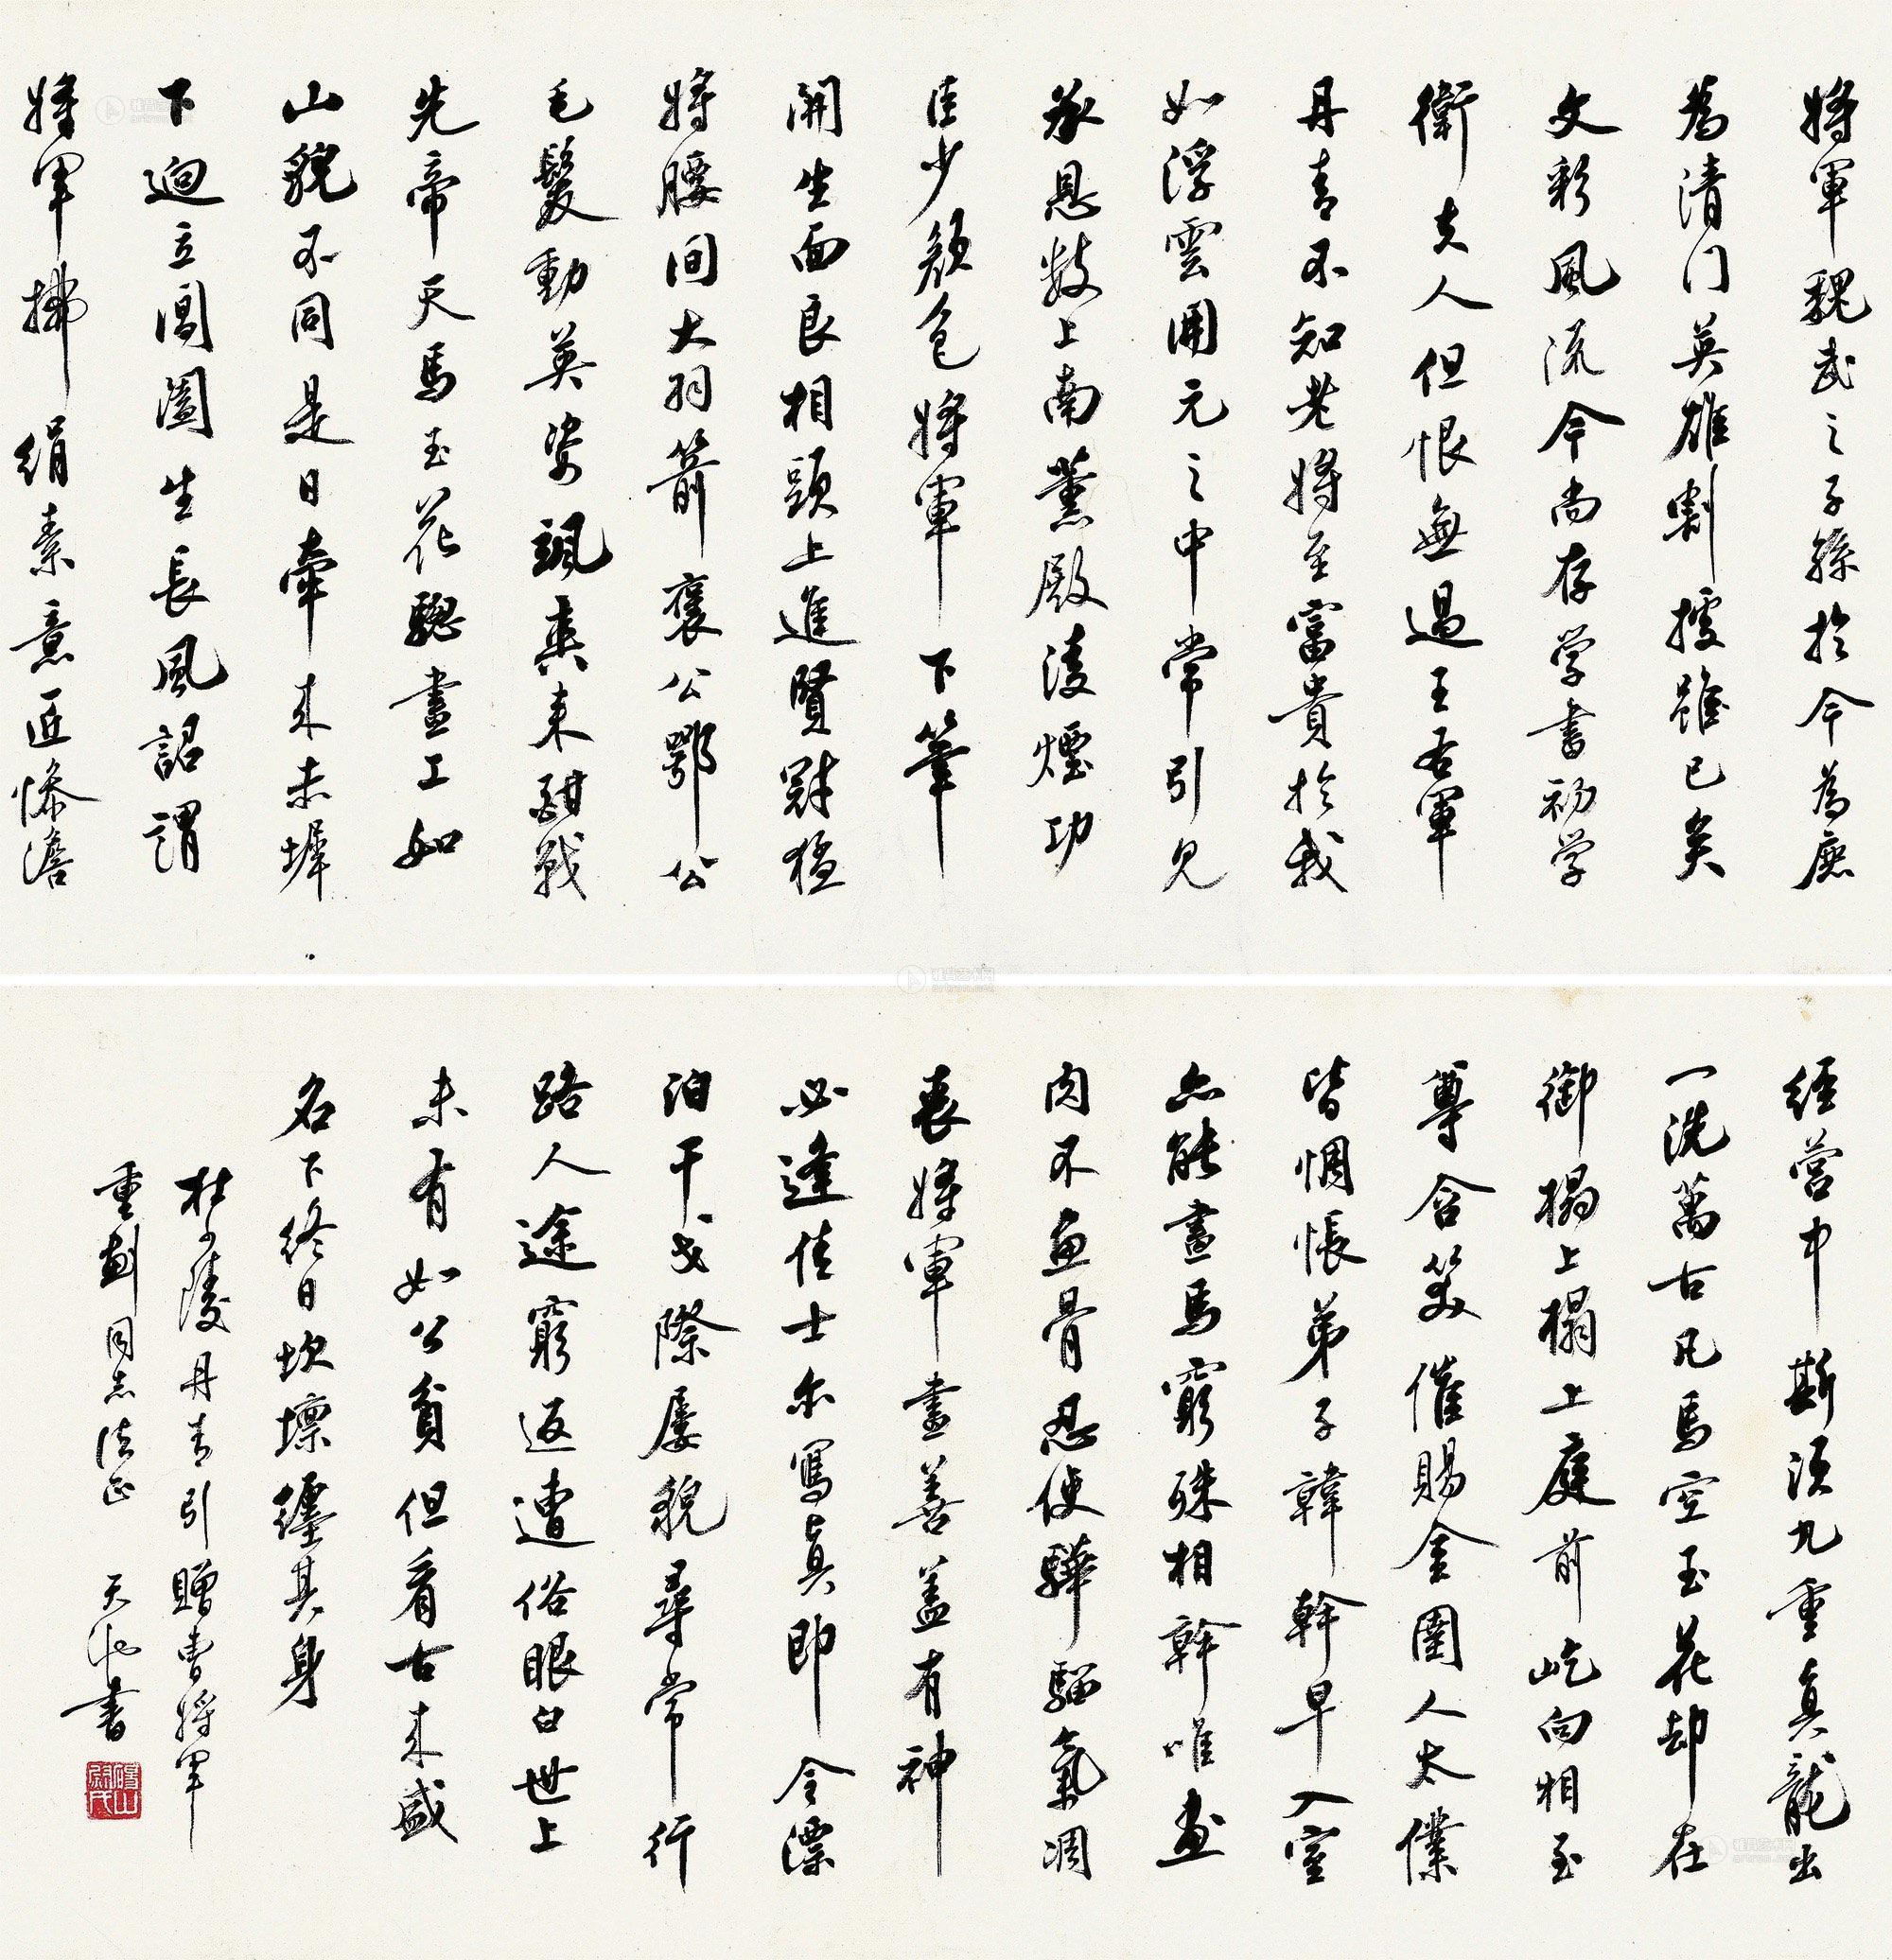 將軍魏武之子孫於今為庶
為清门英雄割據雖已矣
文彩風流今尚存学書初学
衛夫人但恨無過王右軍
丹青不知老將至富貴於我
如浮雲開元之中常引見
承恩數上南薰殿凌煙功
臣少顏色將軍下筆
開生面良相頭上進賢冠猛
將腰间大羽箭褒公鄂公
毛髮動英姿颯爽来酣戰
先帝天馬玉花驄畫工如
山貌不同是日牽来赤墀
下迥立閶闔生長風詔謂
將軍拂絹素意匠慘澹
經营中斯須九重真龍出
一洗萬古凡馬空玉花却在
御榻上榻上庭前屹向相至
尊含笑催賜金圉人太僕
皆惆悵弟子韓幹早入室
亦能畫馬窮殊相幹唯画
肉不画骨忍使驊騮氣凋
喪將軍畫善盖有神
必逢佳士亦寫真即今漂
泊干戈際屢貌尋常行
路人途窮返遭俗眼白世上
未有如公貧但看古来盛
名下終日坎壈纏其身
杜少陵丹青引贈曹將軍
重劃同志法正 天池書